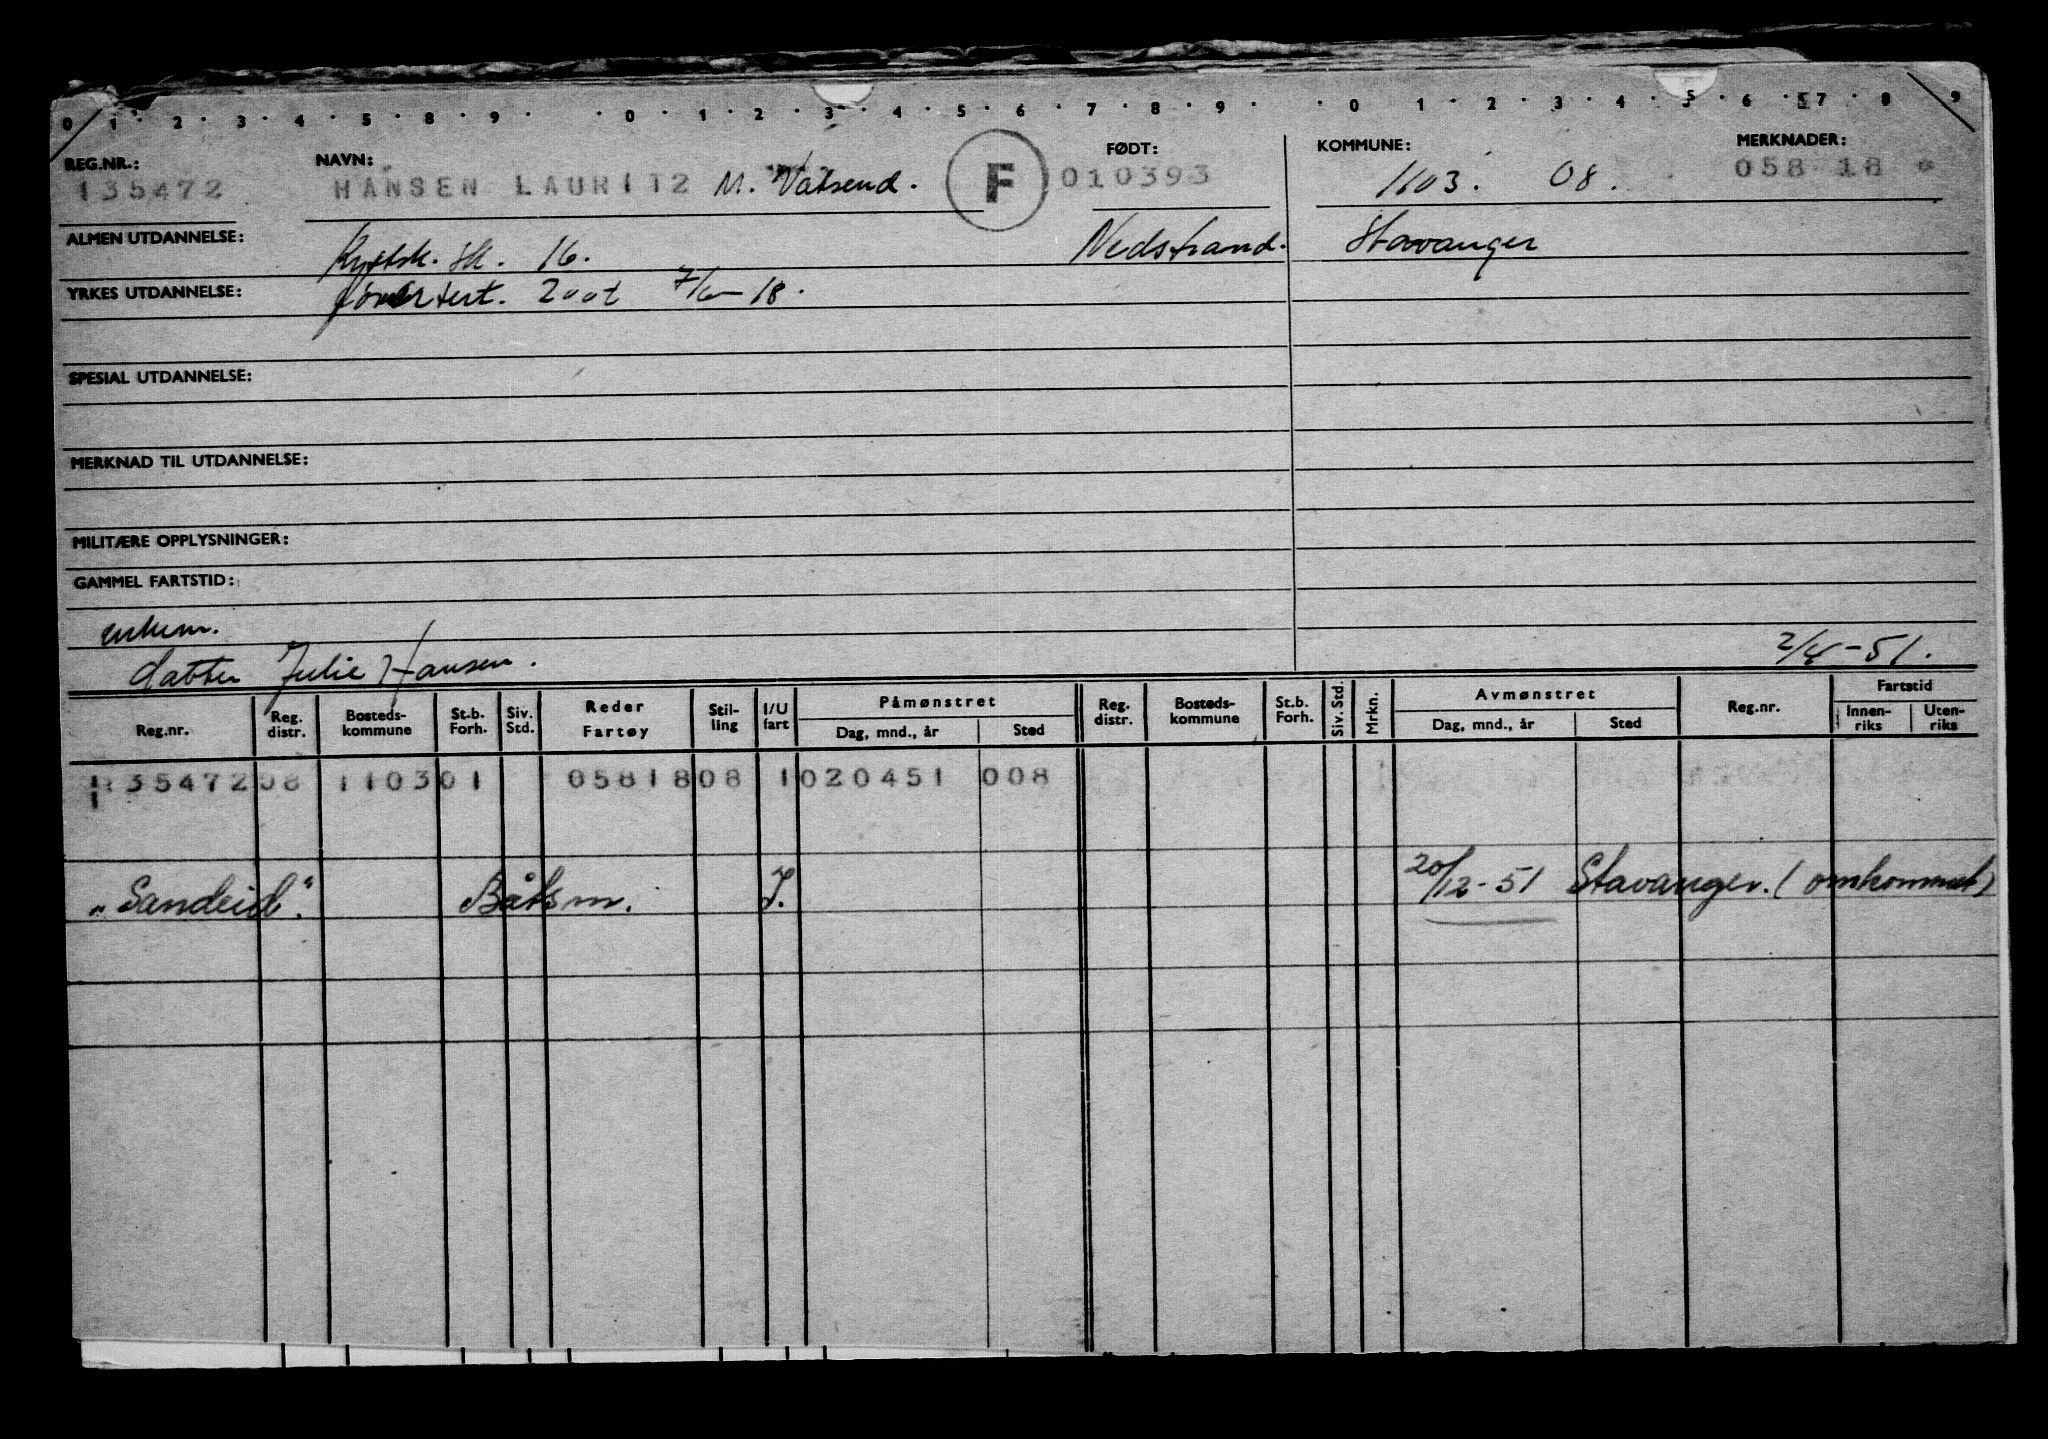 0 1 2 3 4 5 8 9 0 1 2 3 4 5 6 7 8 9 0 1 2 3 4 5 6 7 8 9
REG.NR.: NAVN: FØDT: KOMMUNE: MERKNADER:
135472 HANSEN LAURITZ M. Vatsend. F 010393 1103. 08. 058 18 *
ALMEN UTDANNELSE: Kystsk. sk. 16. Nedstrand. Stavanger
YRKES UTDANNELSE: 18.
SPESIAL UTDANNELSE:
MERKNAD TIL UTDANNELSE:
MILITÆRE OPPLYSNINGER:
GAMMEL FARTSTID:
enkem.
datter Julie Hansen. 2/4-51.
Reg.nr. Reg. distr. Bosteds-kommune St.b. Forh. Siv. Std. Reder Fartøy Stil-ling I/U fart Påmønstret Dag, mnd., år Sted Reg. distr. Bosteds-kommune St.b. Forh. Siv. Std. Mrkn. Avmønstret Dag, mnd., år Sted Reg.nr. Fartstid Innen-riks Uten-riks
135472 08 1103 01 05818 08 1 020451 008
"Sandeid". Båtsm. I. 20/12-51 Stavanger. (omkommet)